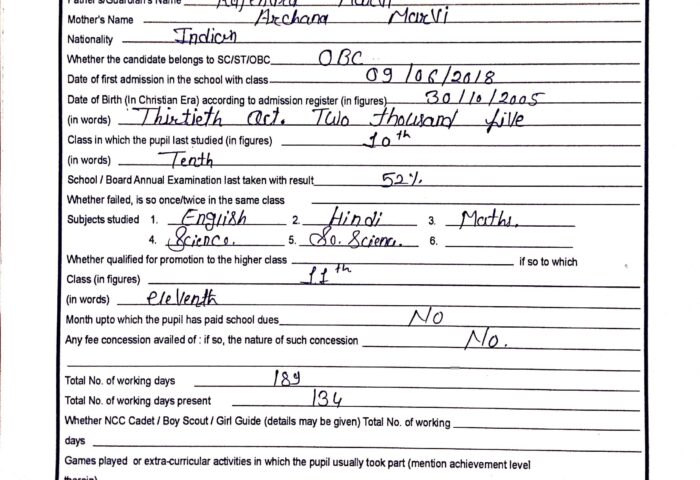 Father's/Guardian's Name Rajendra Marvi
Mother's Name Archana Marvi
Nationality Indian
Whether the candidate belongs to SC/ST/OBC OBC
Date of first admission in the school with class 09/06/2018
Date of Birth (In Christian Era) according to admission register (in figures) 30/10/2005
(in words) Thirtieth Oct. Two thousand five
Class in which the pupil last studied (in figures) 10th
(in words) Tenth
School / Board Annual Examination last taken with result 52%
Whether failed, is so once/twice in the same class
Subjects studied 1. English 2. Hindi 3. Maths.
4. Science. 5. So. Scienc. 6.
Whether qualified for promotion to the higher class if so to which
Class (in figures) 11th
(in words) eleventh
Month upto which the pupil has paid school dues No
Any fee concession availed of : if so, the nature of such concession No.
Total No. of working days 189
Total No. of working days present 134
Whether NCC Cadet / Boy Scout / Girl Guide (details may be given) Total No. of working
days
Games played or extra-curricular activities in which the pupil usually took part (mention achievement level
therein)